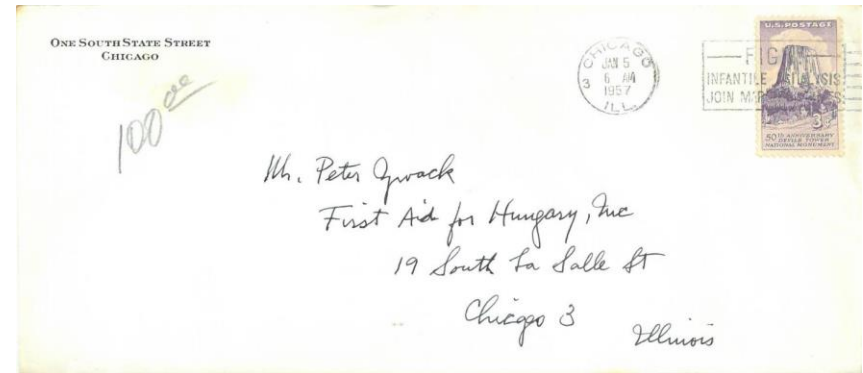 ONE SOUTH STATE STREET
CHICAGO
100 00
CHICAGO
JAN 5
6 AM
1957
3
ILL.
FIGHT
INFANTILE PARALYSIS
JOIN MARCH OF DIMES
U.S. POSTAGE
3¢
50TH ANNIVERSARY
DEVILS TOWER
NATIONAL MONUMENT
Mr. Peter Zwack
First Aid for Hungary, Inc
19 South La Salle St
Chicago 3
Illinois